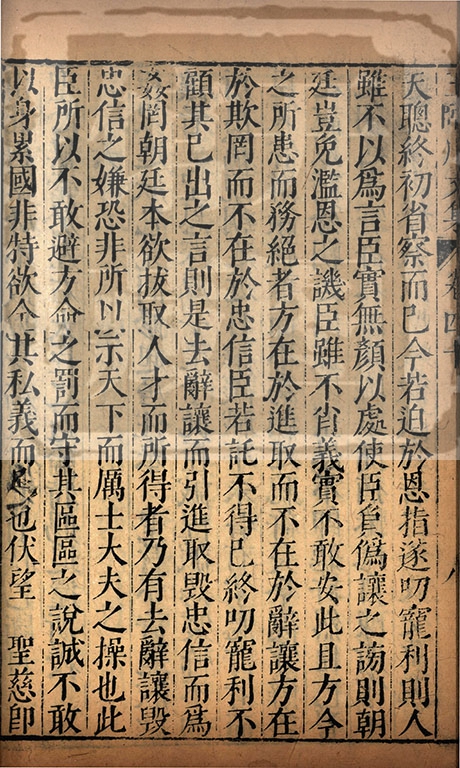 文集 卷四十 八
天聰終初省察而已今若迫於恩指遂叨寵利則人
雖不以爲言臣實無顏以處使臣負僞讓之謗則朝
廷豈免濫恩之譏臣雖不省義實不敢安此且方今
之所患而務絕者方在於進取而不在於辭讓方在
於欺罔而不在於忠信臣若託不得已終叨寵利不
顧其已出之言則是去辭讓而引進取毀忠信而爲
姦罔朝廷本欲拔取人才而所得者乃有去辭讓毀
忠信之嫌恐非所以示天下而厲士大夫之操也此
臣所以不敢避方命之罰而守其區區之說誠不敢
以身累國非特欲全其私義而也伏望 聖慈即